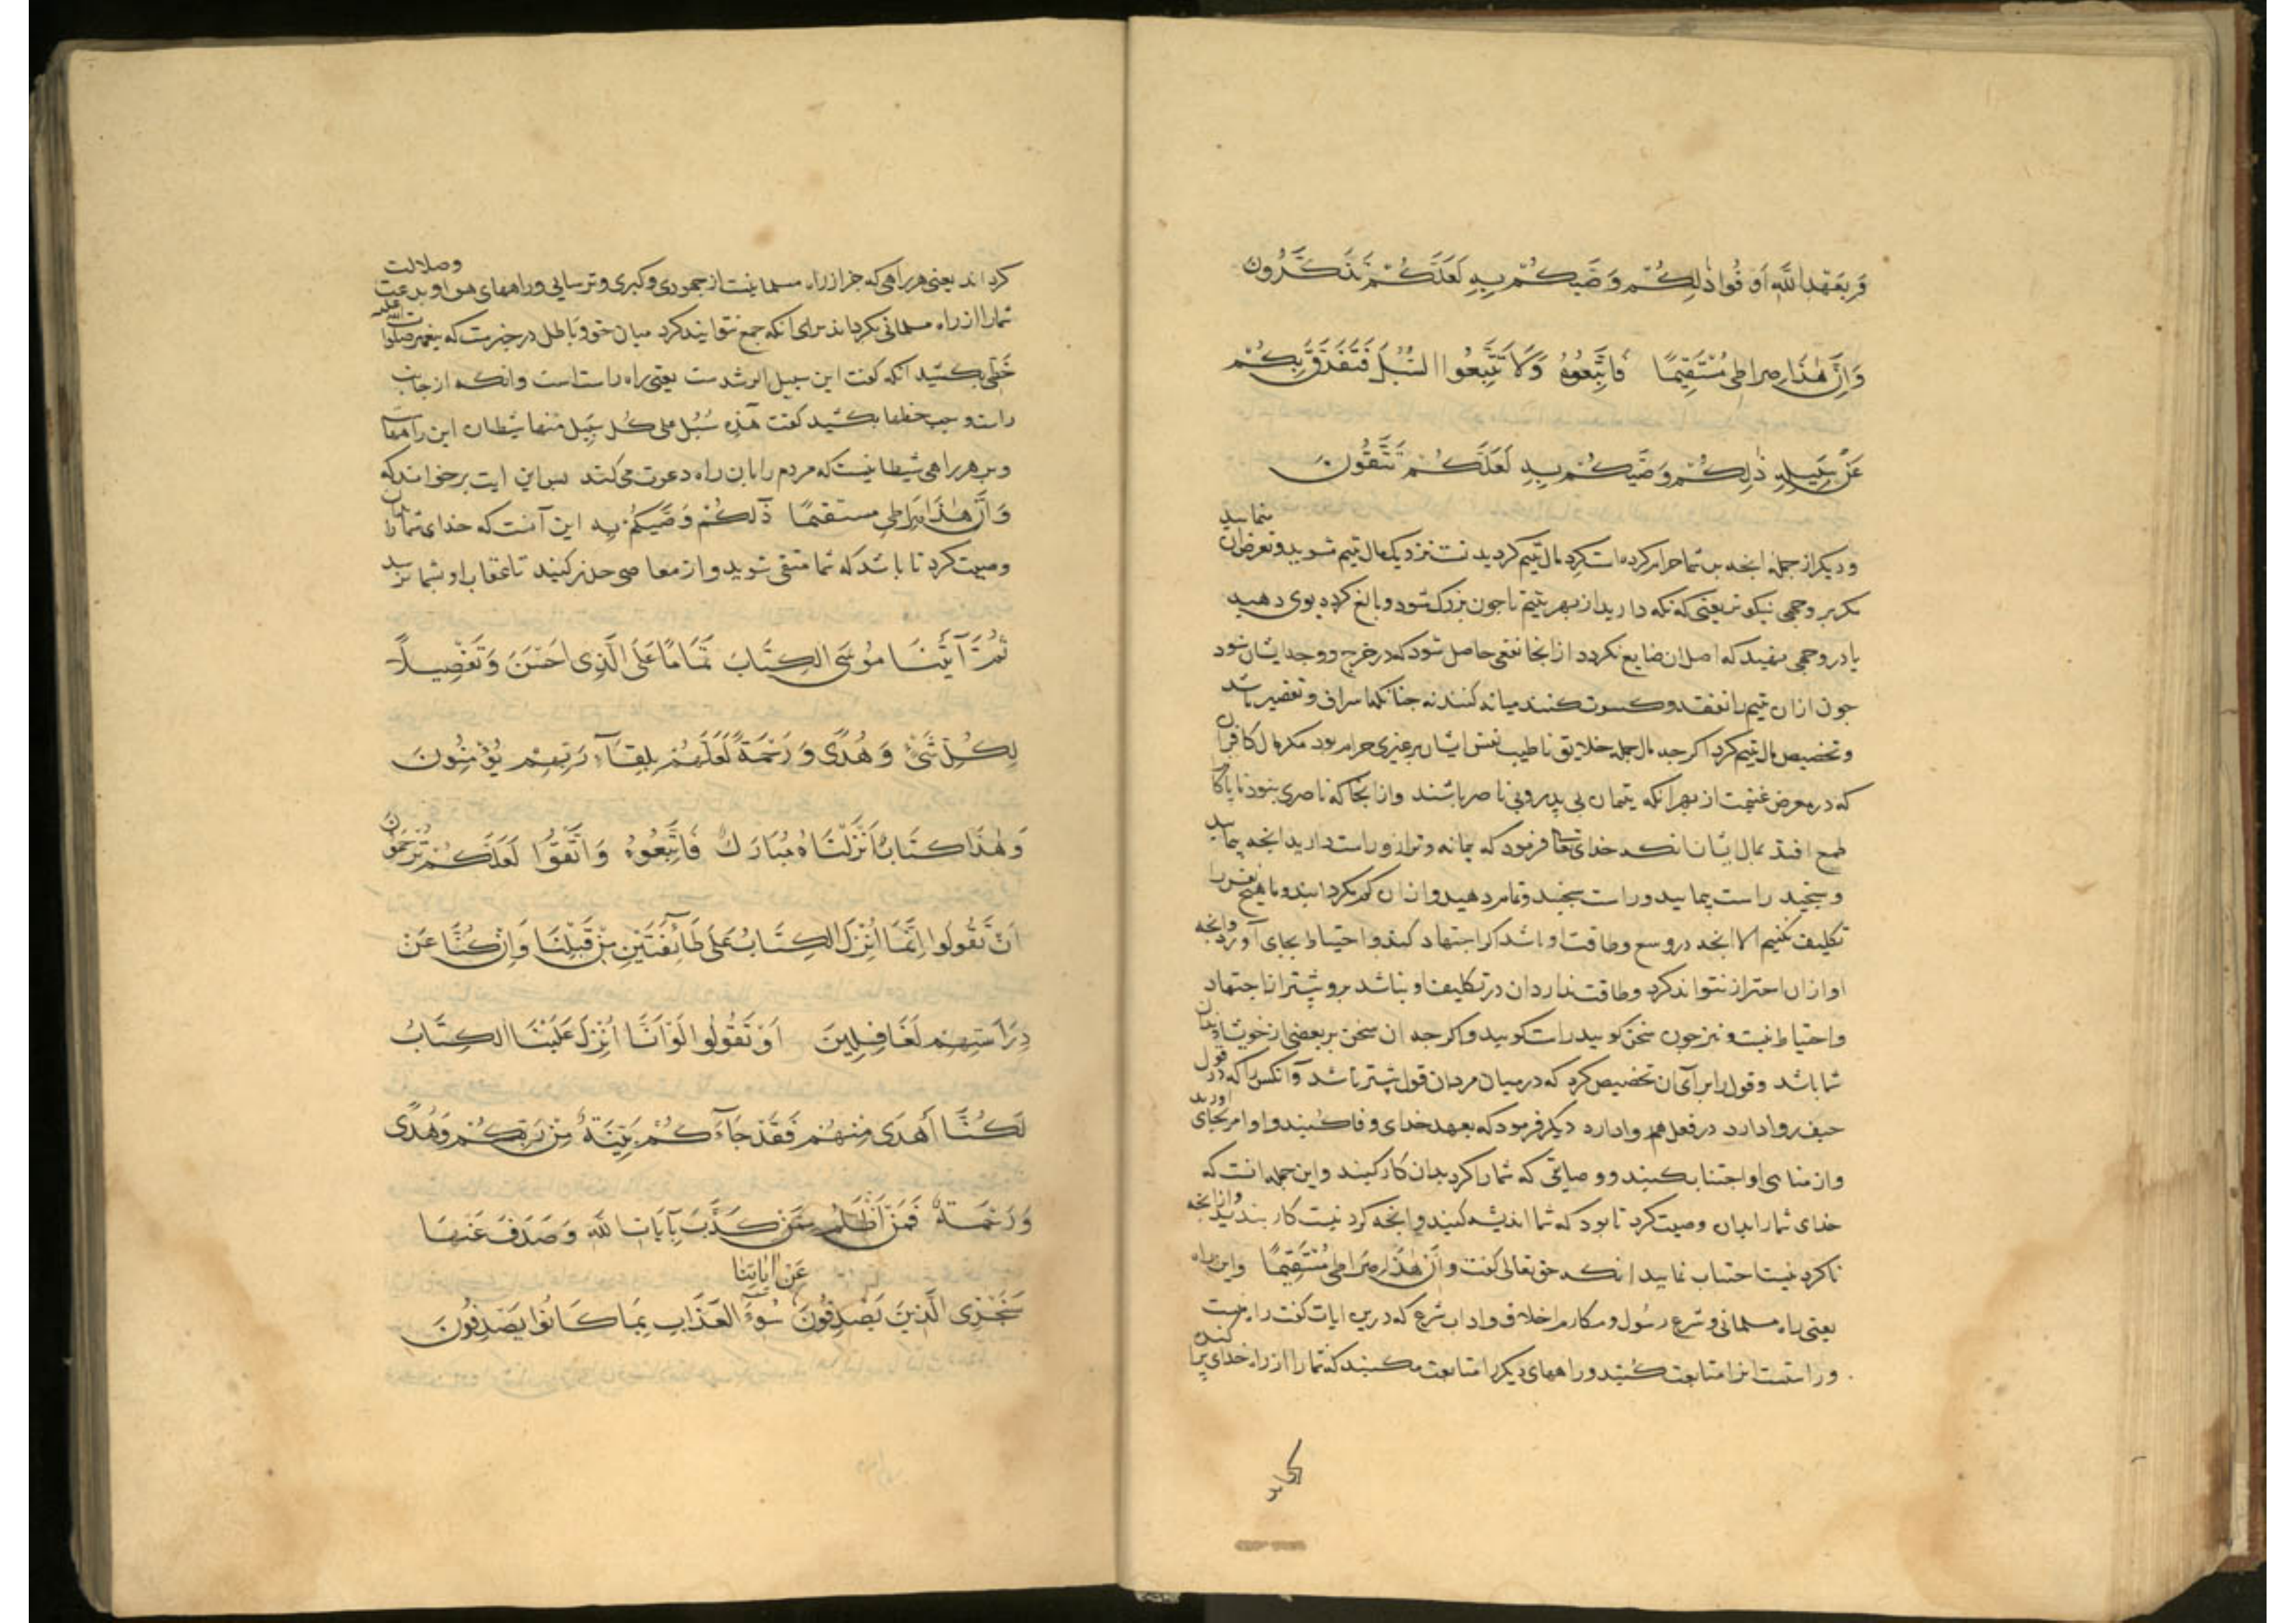 وَبِعَهْدِ اللَّهِ أَوْفُوا ذٰلِكُمْ وَصَّيكُمْ بِهِ لَعَلَّكُمْ تَذَكَّرُونَ
وَاَنَّ هٰذَا صِراطى مُسْتَقِيمًا فَاتَّبِعُوهُ وَلَا تَتَّبِعُوا السُّبُلَ فَتَفَرَّقَ بِكُمْ
عَنْ سَبِيلِهِ ذٰلِكُمْ وَصَّيكُمْ بِهِ لَعَلَّكُمْ تَتَّقُونَ
و دیکر از جملۀ انجه بر شما حرام کرده است کرد مال یتیم کردیدنست نزدیک مال یتیم مشوید و تعرض ان منمایید
مکر بر وجهی نیکوتر یعنی که نکه دارید از بهر یتیم تا جون بزرک شود و بالغ کردد بوی دهید
یا در وجهی نهید که اصل ان ضایع نکردد از انجا نفعی حاصل شود که در خرج و وجه ایشان شود
جون از ان یتیم را نفقه و کسوت کنند میانه کنند نه جنانکه اسراف و تقصیر باشد
و تخصیص مال یتیم کرد اکرجه مال جمله خلایق نا طیب نفس ایشان بر غیری حرام بود مکر مال کافران
که در معرض غنیمت از بهر انکه یتیمان بی پدر و بی ناصر باشند و از انجا که ناصری نبود
طمع افتد بمال ایشان انکه خدای تعا فرمود که پیمانه و ترازو راست دارید انجه پیمایید
و سنجید راست پیمایید و راست سنجید و تمام دهید و از ان کم مکردانید و ما هیچ نفس را
تکلیف نکنیم الا انجه در وسع و طاقت او باشد اکر اجتهاد کند و احتیاط بجای آورد و انجه
او از ان احتراز نتواند کرد و طاقت ندارد ان در تکلیف او نباشد بر وی بیشتر از اجتهاد
و احتیاط نیست و نیز جون سخن کویید راست کویید و اکرجه ان سخن بر بعضی از خویشان
شما باشد و قول را برای آن تخصیص کرد که در میان مردمان قول بیشتر باشد و آنکس را که در قول
حیف روا دارد در فعل هم روا دارد دیکر فرمود که بعهد خدای وفا کنید و اوامر بجای اورید
و از مناهی او اجتناب کنید و وصایتی که شما را کرد بدان کار کنید و این جمله انست که
خدای شما را بدان وصیت کرد تا بود که شما اندیشه کنید و انجه کردنیست کار بندید و از انجه
ناکردنیست اجتناب نمایید انکه حق تعالی کفت و اَنَّ هٰذَا صِرَاطى مُسْتَقِيمًا و این راه
یعنی راه مسلمانی و شرع رسول و مکارم اخلاق و اداب شرع که درین ایات کفت راه منست
و راستست انرا متابعت کنید و راههای دیکر را متابعت مکنید که شما را از راه خدای پراکنده
کرداند یعنی هر راهی که جز از راه مسلمانیست از جهودی و کبری و ترسایی و راههای هوا و بدعت و ضلالت
شما را از راه مسلمانی بکرداند برای آنکه جمع نتوانند کرد میان حق و باطل در خبرست که پیغمبر صلوات الله علیه
خطی بکشید آنکه کفت این سبیل الرشدست یعنی راه راست است و انکه از جانب
راست و جب خطها بکشید کفت هٰذِهِ سُبُل على كُل سَبيل منها شیطان این راههاست
و بر هر راهی شیطانیست که مردم را بان راه دعوت می کند بس این ایت برخواند که
وَاَنَّ هٰذَا صِراطى مستقيمًا ذٰلِكُمْ وَصَّيكُمْ بِهِ این آنست که خدای شما را بان
وصیت کرد تا باشد که شما متقی شوید و از معاصی حذر کنید تا عقاب او بشما نرسد
ثُمَّ آتَيْنَا مُوسَى الْكِتَابَ تَمَامًا عَلَى الَّذِى اَحْسَنَ وَتَفْصِيلًا
لِكُلِّ شَىْءٍ وَهُدًى وَرَحْمَةً لَعَلَّهُمْ بِلِقَآءِ رَبِّهِمْ يُؤْمِنُونَ
وَهٰذَا كِتَابٌ اَنْزَلْنَاهُ مُبَارَكٌ فَاتَّبِعُوهُ وَاتَّقُوا لَعَلَّكُمْ تُرْحَمُونَ
اَنْ تَقُولُوا اِنَّمَا اُنْزِلَ الْكِتَابُ عَلَى طَآئِفَتَيْنِ مِنْ قَبْلِنَا وَاِنْ كُنَّا عَنْ
دِرَاسَتِهِمْ لَغَافِلِينَ اَوْ تَقُولُوا لَوْ اَنَّا اُنْزِلَ عَلَيْنَا الْكِتَابُ
لَكُنَّا أَهْدَى مِنْهُمْ فَقَدْ جَآءَكُمْ بَيِّنَةٌ مِنْ رَبِّكُمْ وَهُدًى
وَرَحْمَةٌ فَمَنْ اَظْلَمُ مِمَّنْ كَذَّبَ بِآيَاتِ اللَّهِ وَصَدَفَ عَنْهَا
سَنَجْزِى الَّذِينَ يَصْدِفُونَ عَنْ اٰيَاتِنَا سُوءَ الْعَذَابِ بِمَا كَانُوا يَصْدِفُونَ